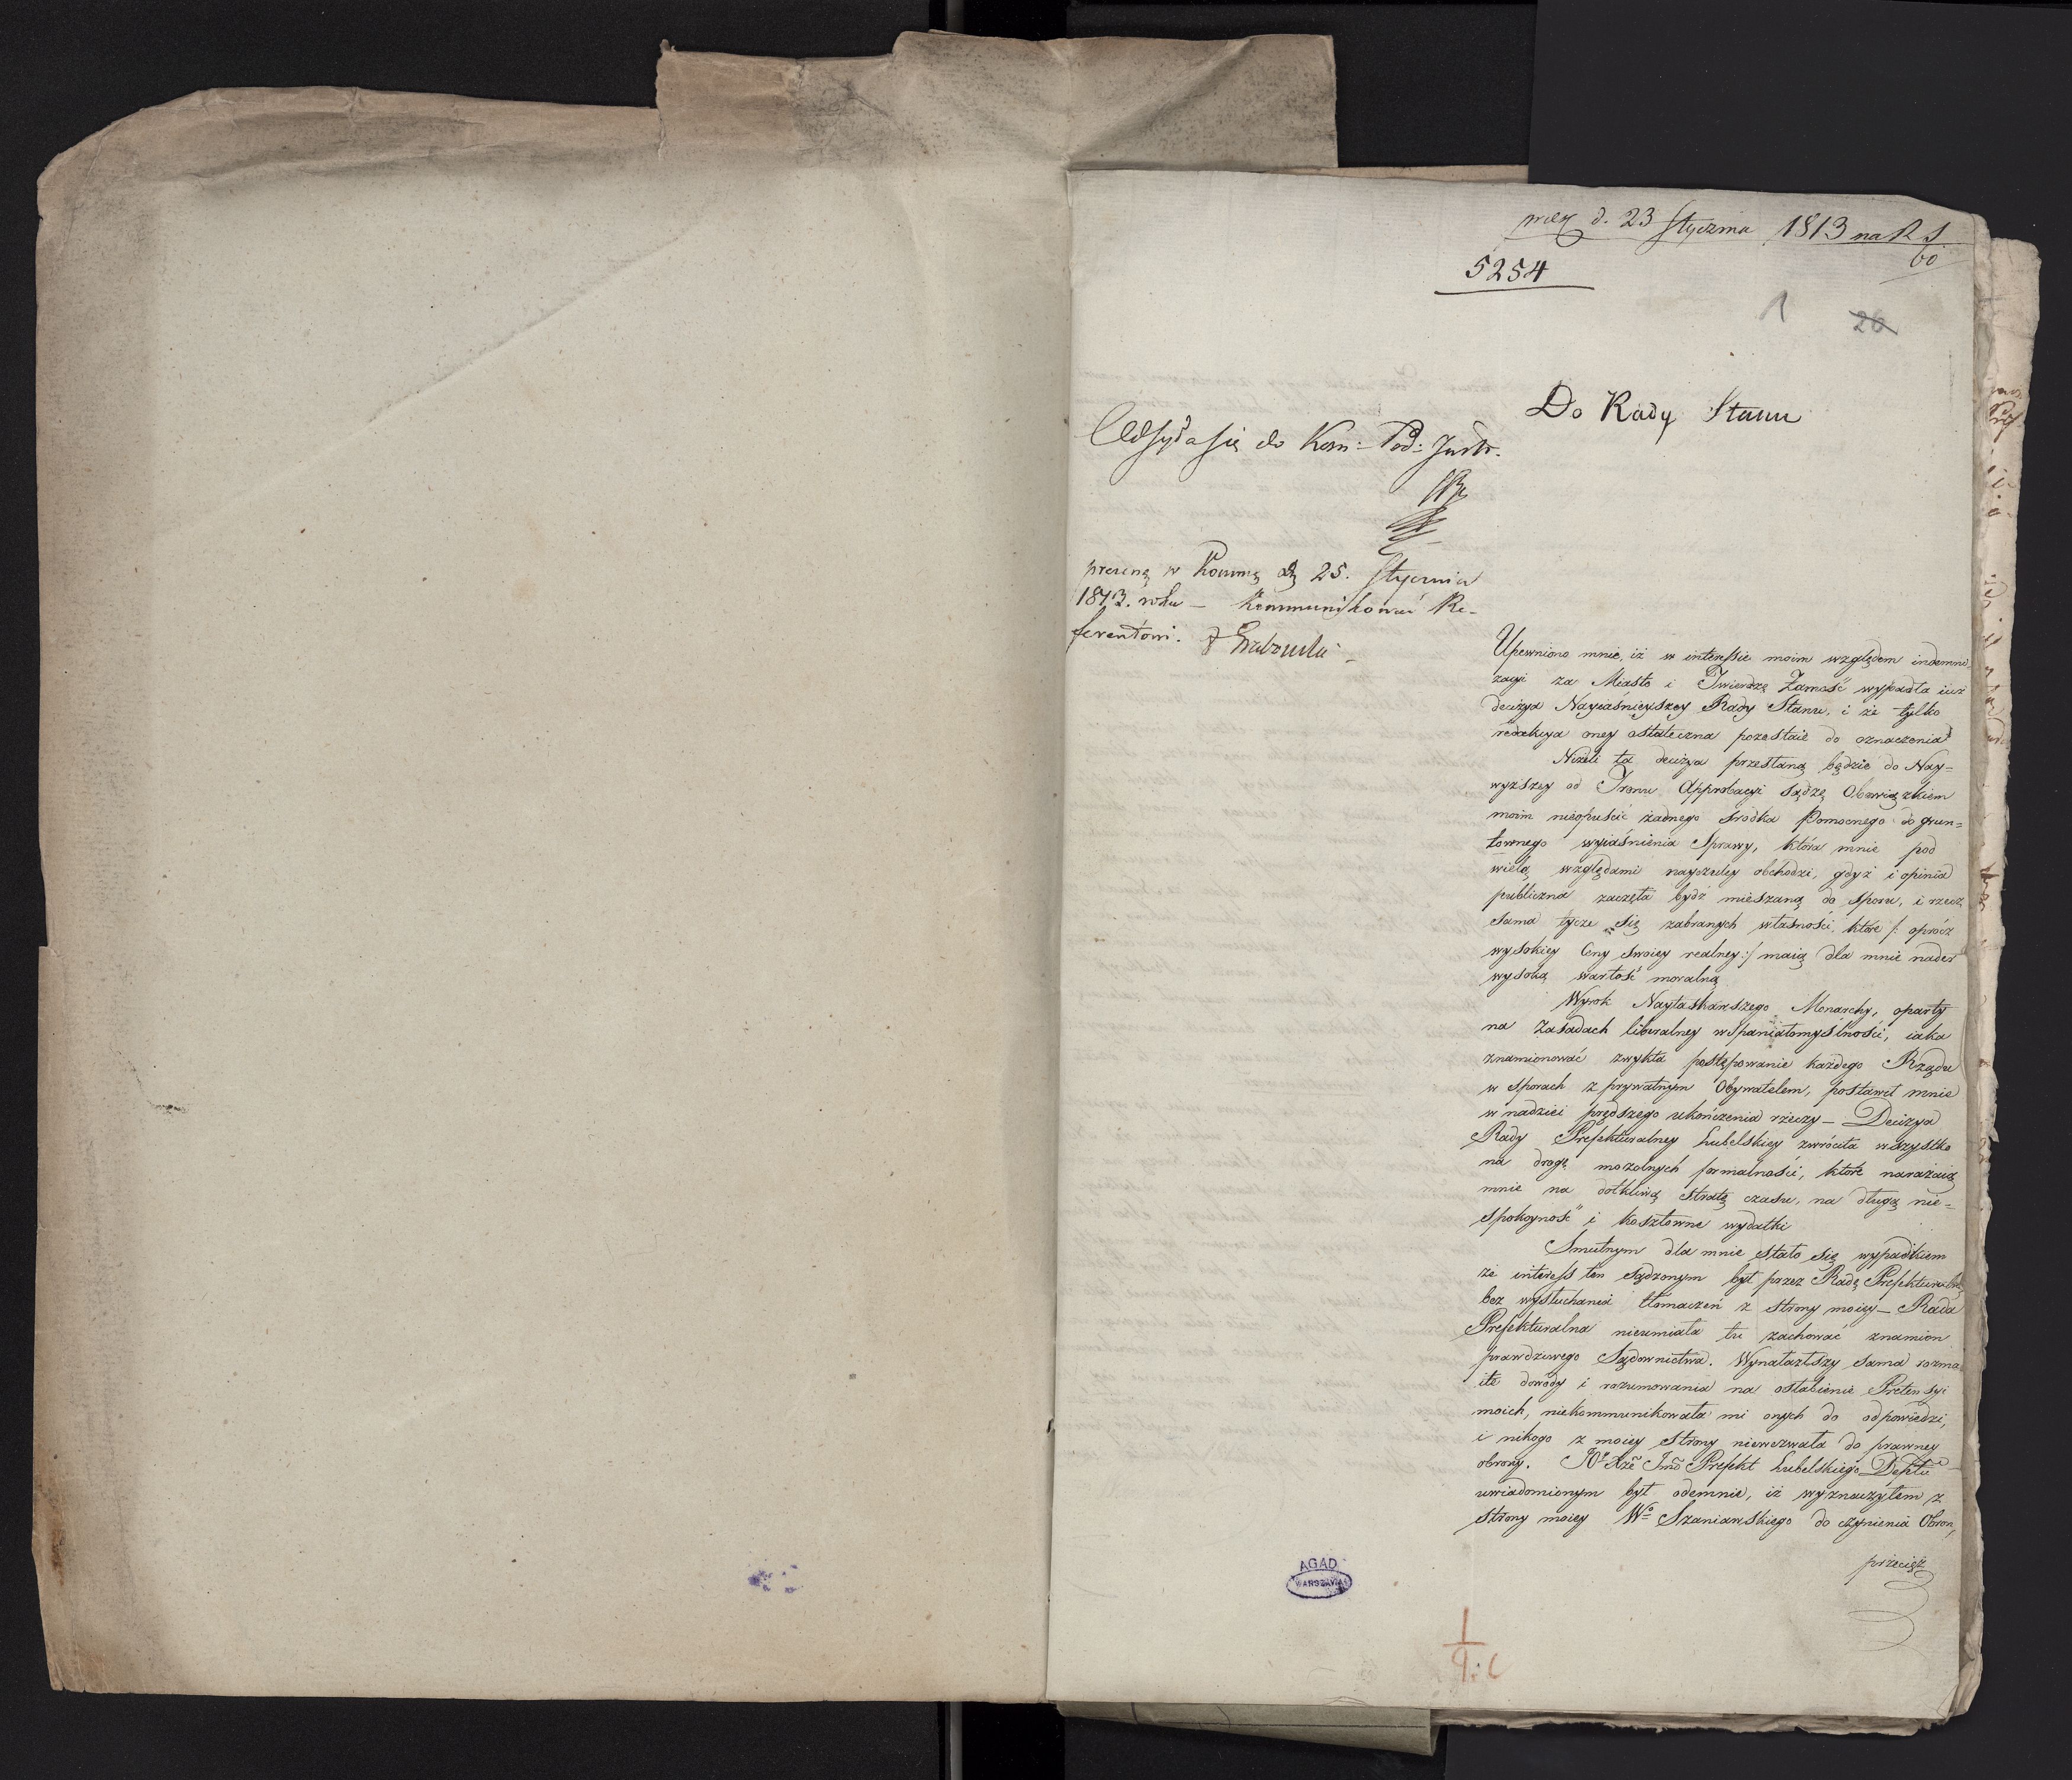 d. 23 Stycznia 1813 na R S.
60
5254
1 26
Do Rady Stanu
Odsyła się do Kom: Pod: Justr.
prezent w Kommę d. 25. Stycznia
1813. roku – Kommunikować Re-
ferentowi.
Upewniono mnie, iż w interessie moim względem indemni-
zacyi za Miasto i Twierdzę Zamość wypadła iuż
decizya Nayiaśnieyszey Rady Stanu, i że tylko
redakcya oney ostateczna pozostaie do oznaczenia
Niżeli ta decizya przesłaną będzie do Nay=
wyższey od Tronu Approbacyi sądzę Obowiązkiem
moim nieopuścić żadnego środka Pomocnego do grun=
townego wyiaśnienia Sprawy, która mnie pod
wielą względami nayczuley obchodzi, gdyż i opinia
publiczna zaczęła bydź mieszaną do sporu, i rzecz
sama tycze się zabranych własności, które /: oprócz
wysokiey Ceny swoiey realney :/ maią dla mnie nader
wysoką wartość moralną
Wyrok Nayłaskawszego Monarchy, oparty
na Zasadach liberalney wspaniałomyślności, iaka
znamionować zwykła postępowanie każdego Rządu
w sporach z prywatnym Obywatelem, postawił mnie
w nadziei prędszego ukończenia rzeczy – Decizya
Rady Prefekturalney Lubelskiey zwróciła wszystko
na drogę mozolnych formalności, które narażaią
mnie na dotkliwą stratę czasu, na długą nie=
spokoyność i kosztowne wydatki
Smutnym dla mnie stało się wypadkiem
że interess ten sądzonym był przez Radę Prefekturalną
bez wysłuchania tłomaczeń z strony moiey – Rada
Prefekturalna nieumiała tu zachować znamion
prawdziwego Sądownictwa. Wynalazłszy sama rozma
ite dowody i rozumowania na osłabienie Pretensyi
moich, niekommunikowała mi onych do odpowiedzi,
i nikogo z moiey strony niewezwała do prawney
obrony. JO. Xże Jmć Prefekt Lubelskiego Deptu
uwiadomionym był odemnie, iż wyznaczyłem z
strony moiey Wo Szaniawskiego do czynienia Obron,
przecięż
AGAD
WARSZAWA
1